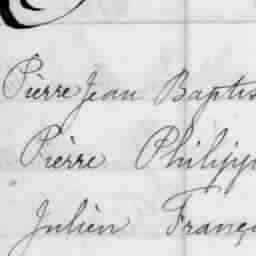 Pierre Jean Baptis
Pierre Philipp
Julien Franç